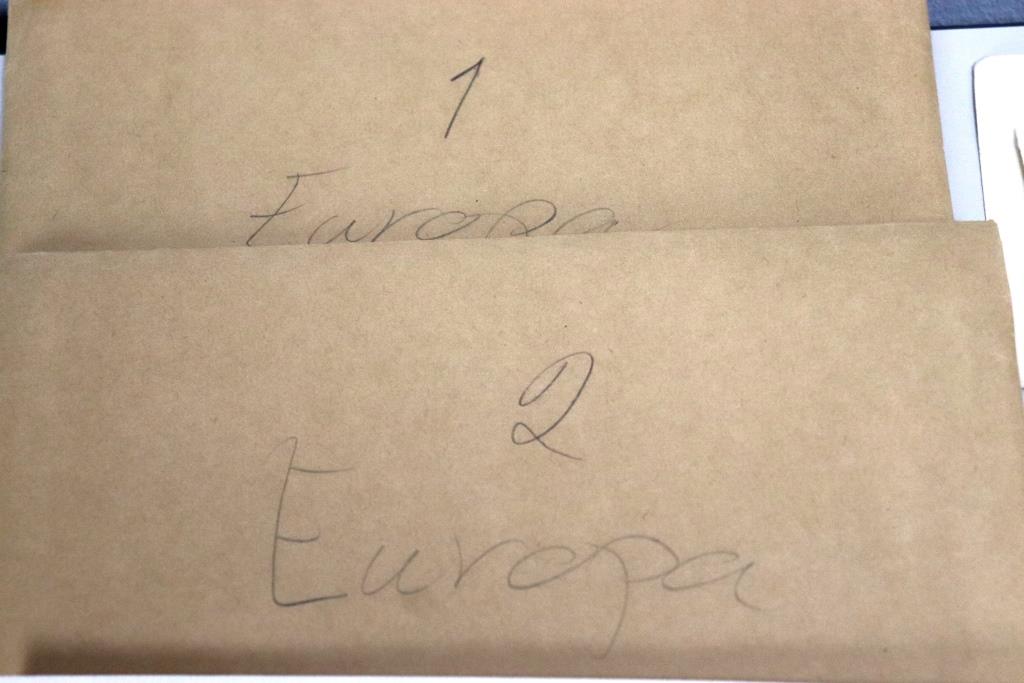 1
Europa
2
Europa